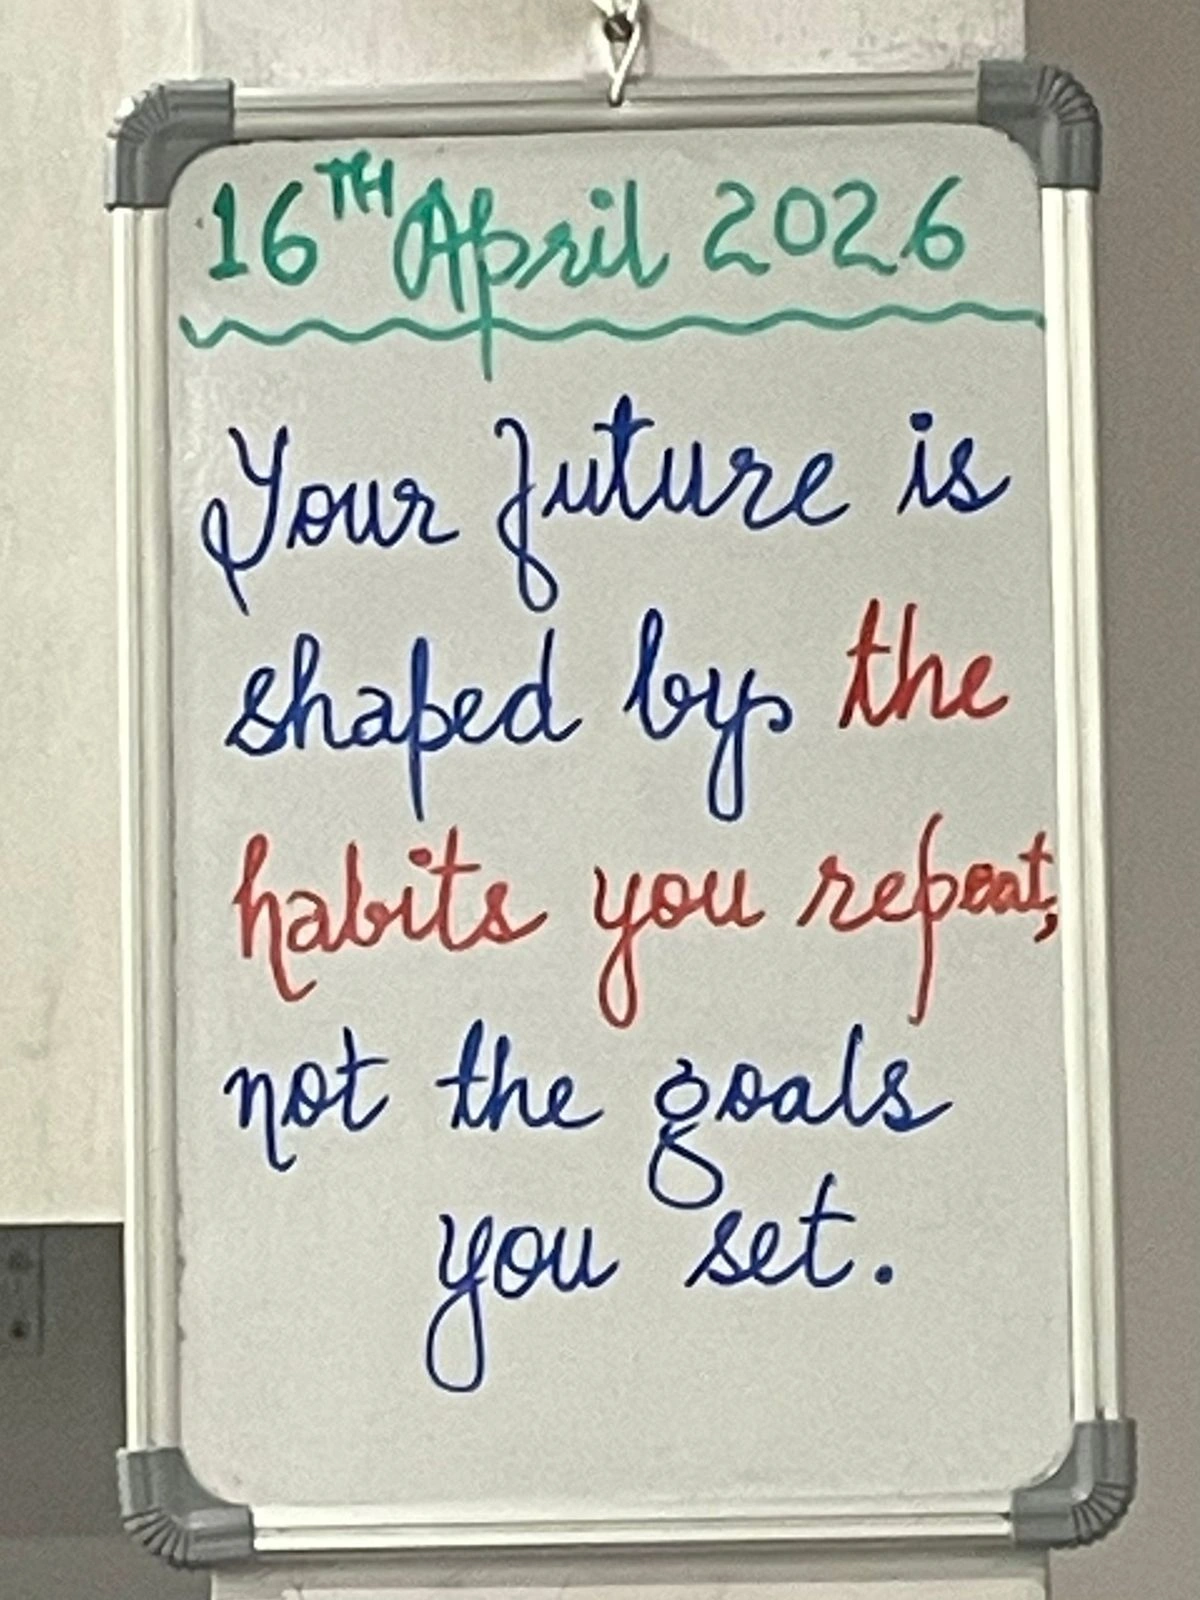 16TH April 2026
Your future is
shaped by the
habits you repeat,
not the goals
you set.